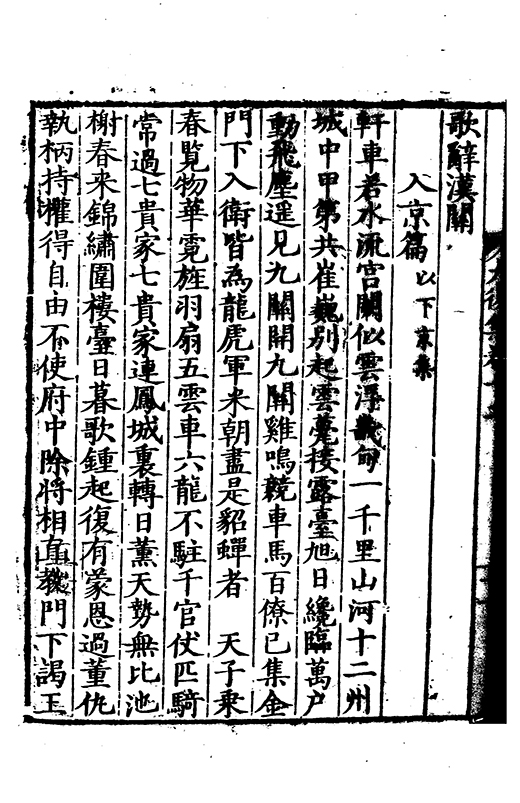 歌辭漢關
入京篇以下京集
軒車若水流宮闕似雲浮畿甸一千里山河十二州
城中甲第共崔巍別起雲甍接露臺旭日纔臨萬戶
動飛塵遥見九關開九關雞鳴競車馬百僚已集金
門下入衛皆為龍虎軍来朝盡是貂蟬者　天子乗
春覽物華霓旌羽扇五雲車六龍不駐千官仗匹騎
常過七貴家七貴家連鳳城裏轉日薫天勢無比池
榭春来錦繡圍樓臺日暮歌鍾起復有蒙恩過董仇
執柄持權得自由不使府中除將相直教門下謁王